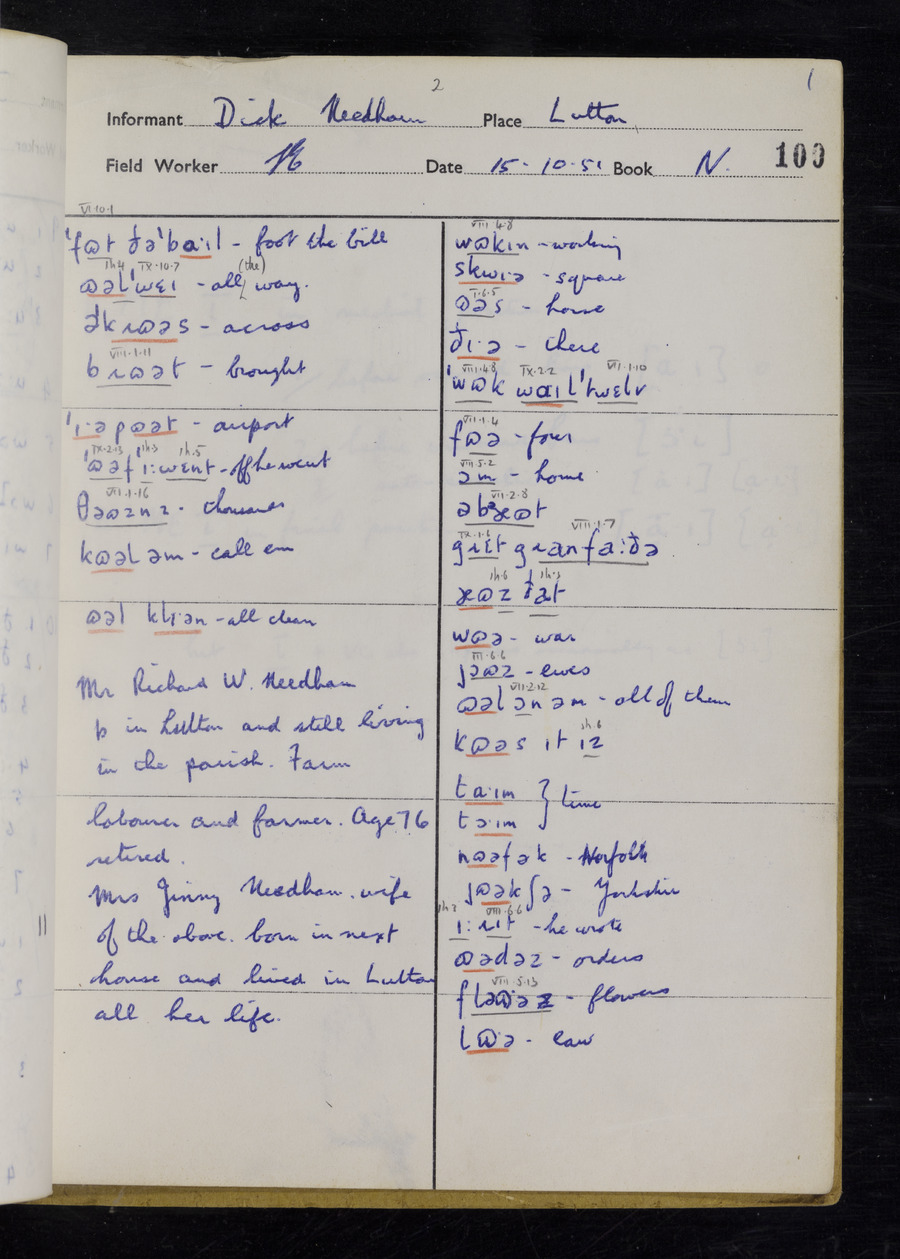 2
1
Informant Dick Needham Place Lutton
Field Worker Date 15-10-51 Book N. 100
VI·10·1
ˈfɷt ðəˈbaˑıl - foot the bill
IX·10·7
ɷəlˈwɛı - all (the) way.
əkɹɷəs - across
VIII·1·11
bɹɷət - brought
ˈıˑəpɷət - airport
IX·2·13
ˈɷəf ıːwɛnt - off he went
VII·1·16
θəɷznz - thousands
kɷəl əm - call em
ɷəl klıˑən - all clean
Mr Richard W. Needham
b in Lutton and still living
in the parish. Farm
labourer and farmer. Age 76
retired.
Mrs Jinny Needham. wife
of the above. born in next
house and lived in Lutton
all her life.
VIII 4·8
wɷkın - working
skwıˑə - square
I·6·5
ɷəs - horse
ðıˑə - there
VIII·4·8 IX·2·2 VII·1·10
ˈwɷk waıl ˈtwɛlv
VII·1·4
fɷə - four
VIII·5·2
əm - home
VII·2·8
IX·1·6 VIII·1·7
gɹɛt gɹanfaːðə
wɷə - war
III·6·6
jəɷz - ewes
VII·2·12
ɷəl ən əm - all of them
kɷəs ıt ız
taˑım } time
təˑım
nɷəfək - Norfolk
jɷəkʃə - Yorkshire
VIII·6·6
ıː ɹıt - he wrote
ɷədəz - orders
VIII·5·13
fləɷəz - flowers
lɷə - law